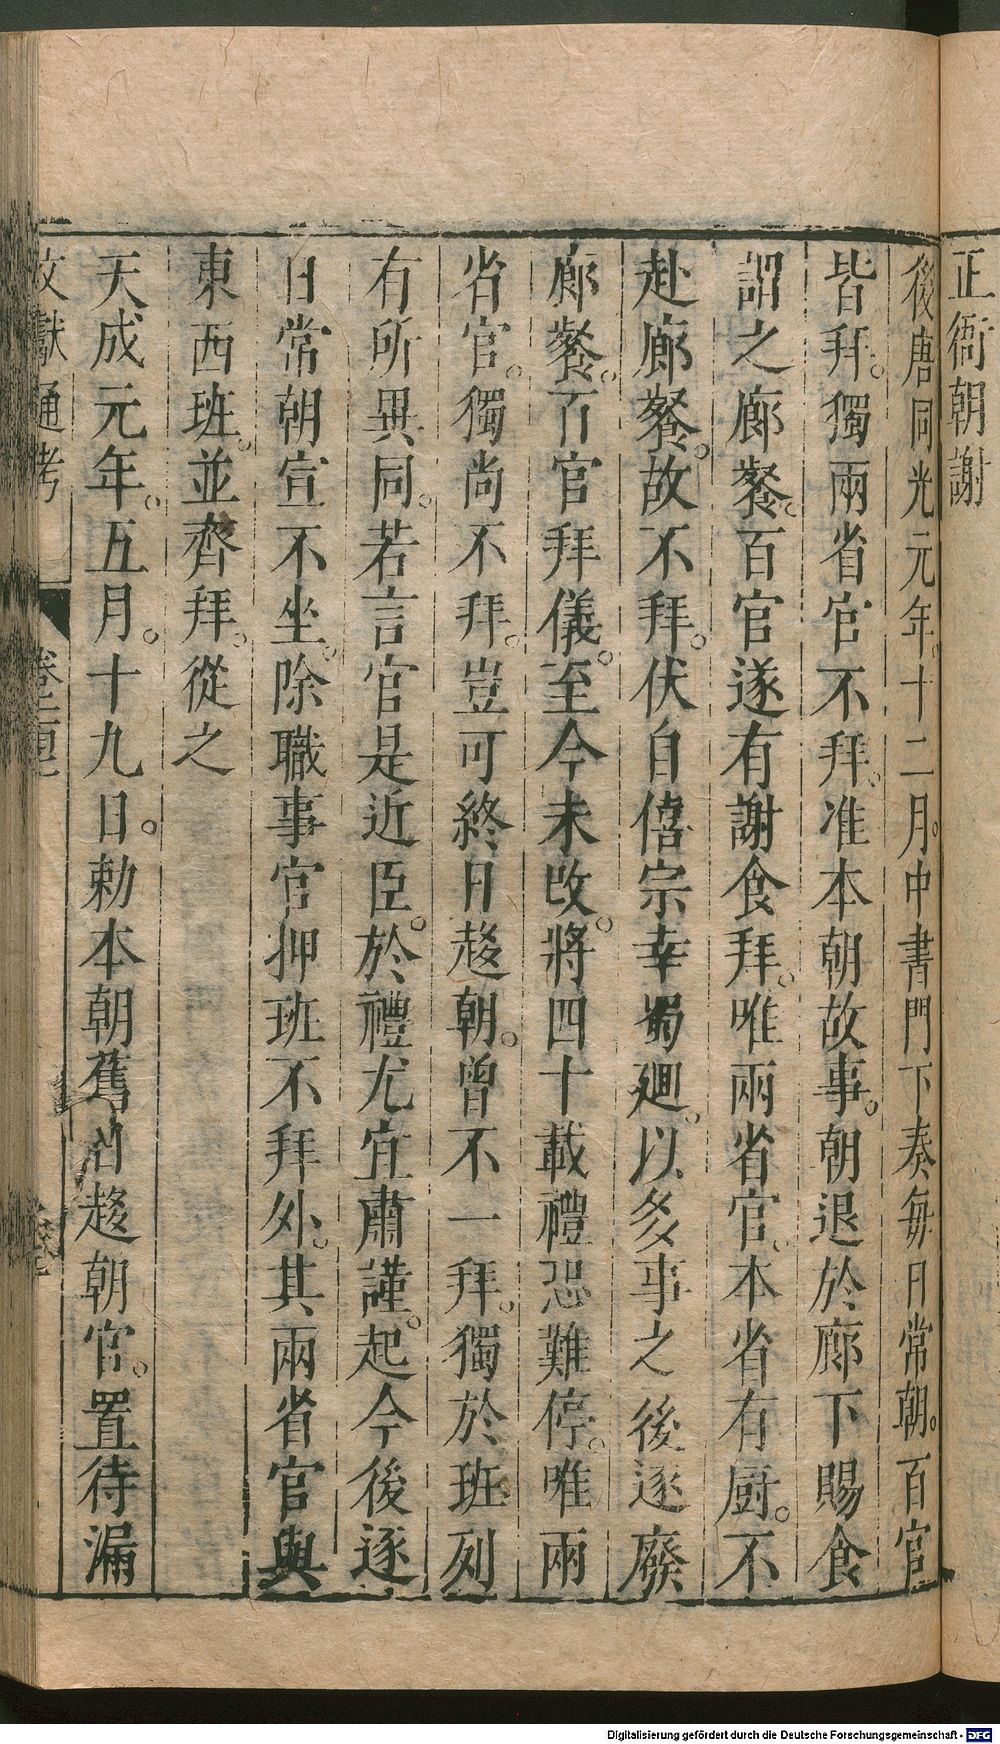 正衙朝謝
後唐同光元年。十二月。中書門下奏每日常朝。百官
皆拜。獨兩省官不拜。准本朝故事。朝退於廊下賜食
謂之廊餐。百官遂有謝食拜。唯兩省官。本省有厨。不
赴廊餐。故不拜。伏自僖宗幸蜀廻。以多事之後遂廢
廊餐。百官拜儀。至今未改。將四十載禮恐難停。唯兩
省官。獨尚不拜。豈可終日趍朝。曾不一拜。獨於班列
有所異同。若言官是近臣。於禮尤宜肅謹。起今後逐
日常朝宣不坐。除職事官押班不拜外。其兩省官與
東西班。並齊拜。從之
天成元年。五月。十九日。勅本朝舊日趍朝官。置待漏
文獻通考
Digitalisierung gefördert durch die Deutsche Forschungsgemeinschaft - DFG